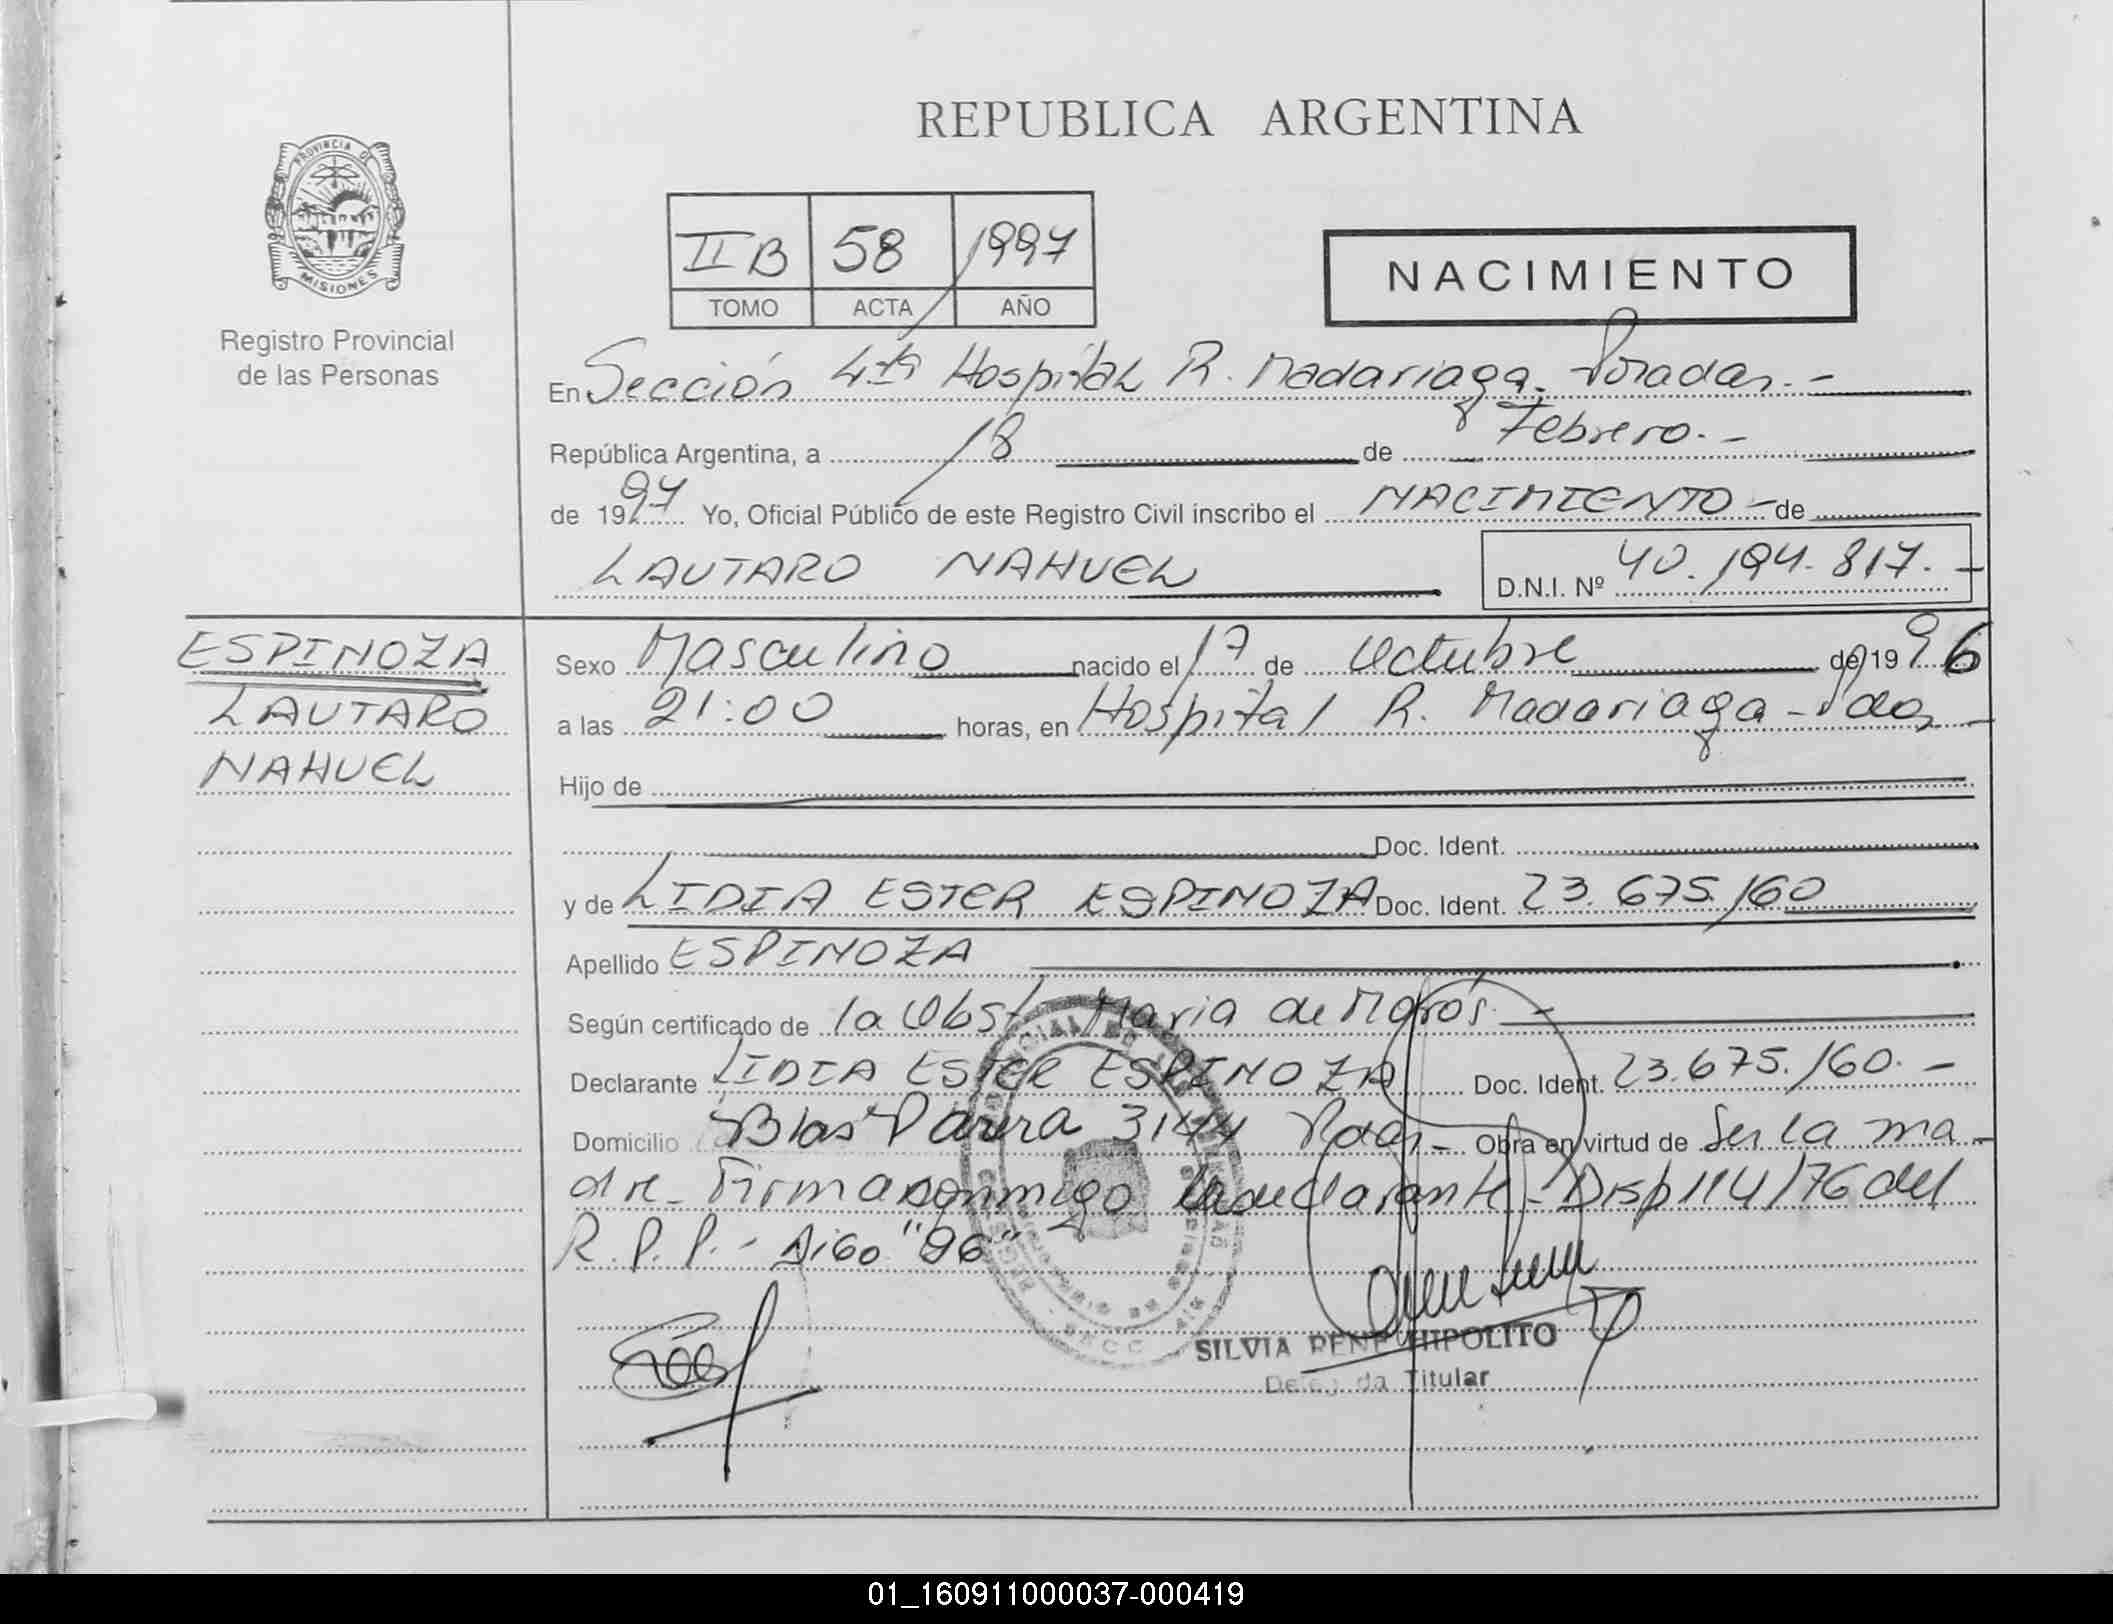 REPUBLICA ARGENTINA
PROVINCIA DE
MISIONES
Registro Provincial
de las Personas
II B 58 1997
TOMO ACTA AÑO
NACIMIENTO
En Sección 4ta Hospital R. Madariaga. Posadas.-
República Argentina, a 18 de Febrero.-
de 1997 Yo, Oficial Público de este Registro Civil inscribo el NACIMIENTO - de
LAUTARO NAHUEL D.N.I. Nº 40.194.817.-
ESPINOZA
LAUTARO
NAHUEL
Sexo Masculino nacido el 17 de Octubre de 1996
a las 21:00 horas, en Hospital R. Madariaga - Pdas -
Hijo de
Doc. Ident.
y de LIDIA ESTER ESPINOZA Doc. Ident. 23.675.160
Apellido ESPINOZA
Según certificado de la Obst. Maria de
Declarante LIDIA ESTER ESPINOZA Doc. Ident. 23.675.160.-
Domicilio Blas Parera 3144 Pdas.- Obra en virtud de Ser la ma-
dre - Firma conmigo la declarante - Disp 114/76 del
R.P.P.- Digo "96"
SILVIA RENE HIPOLITO
Delegada Titular
01_160911000037-000419